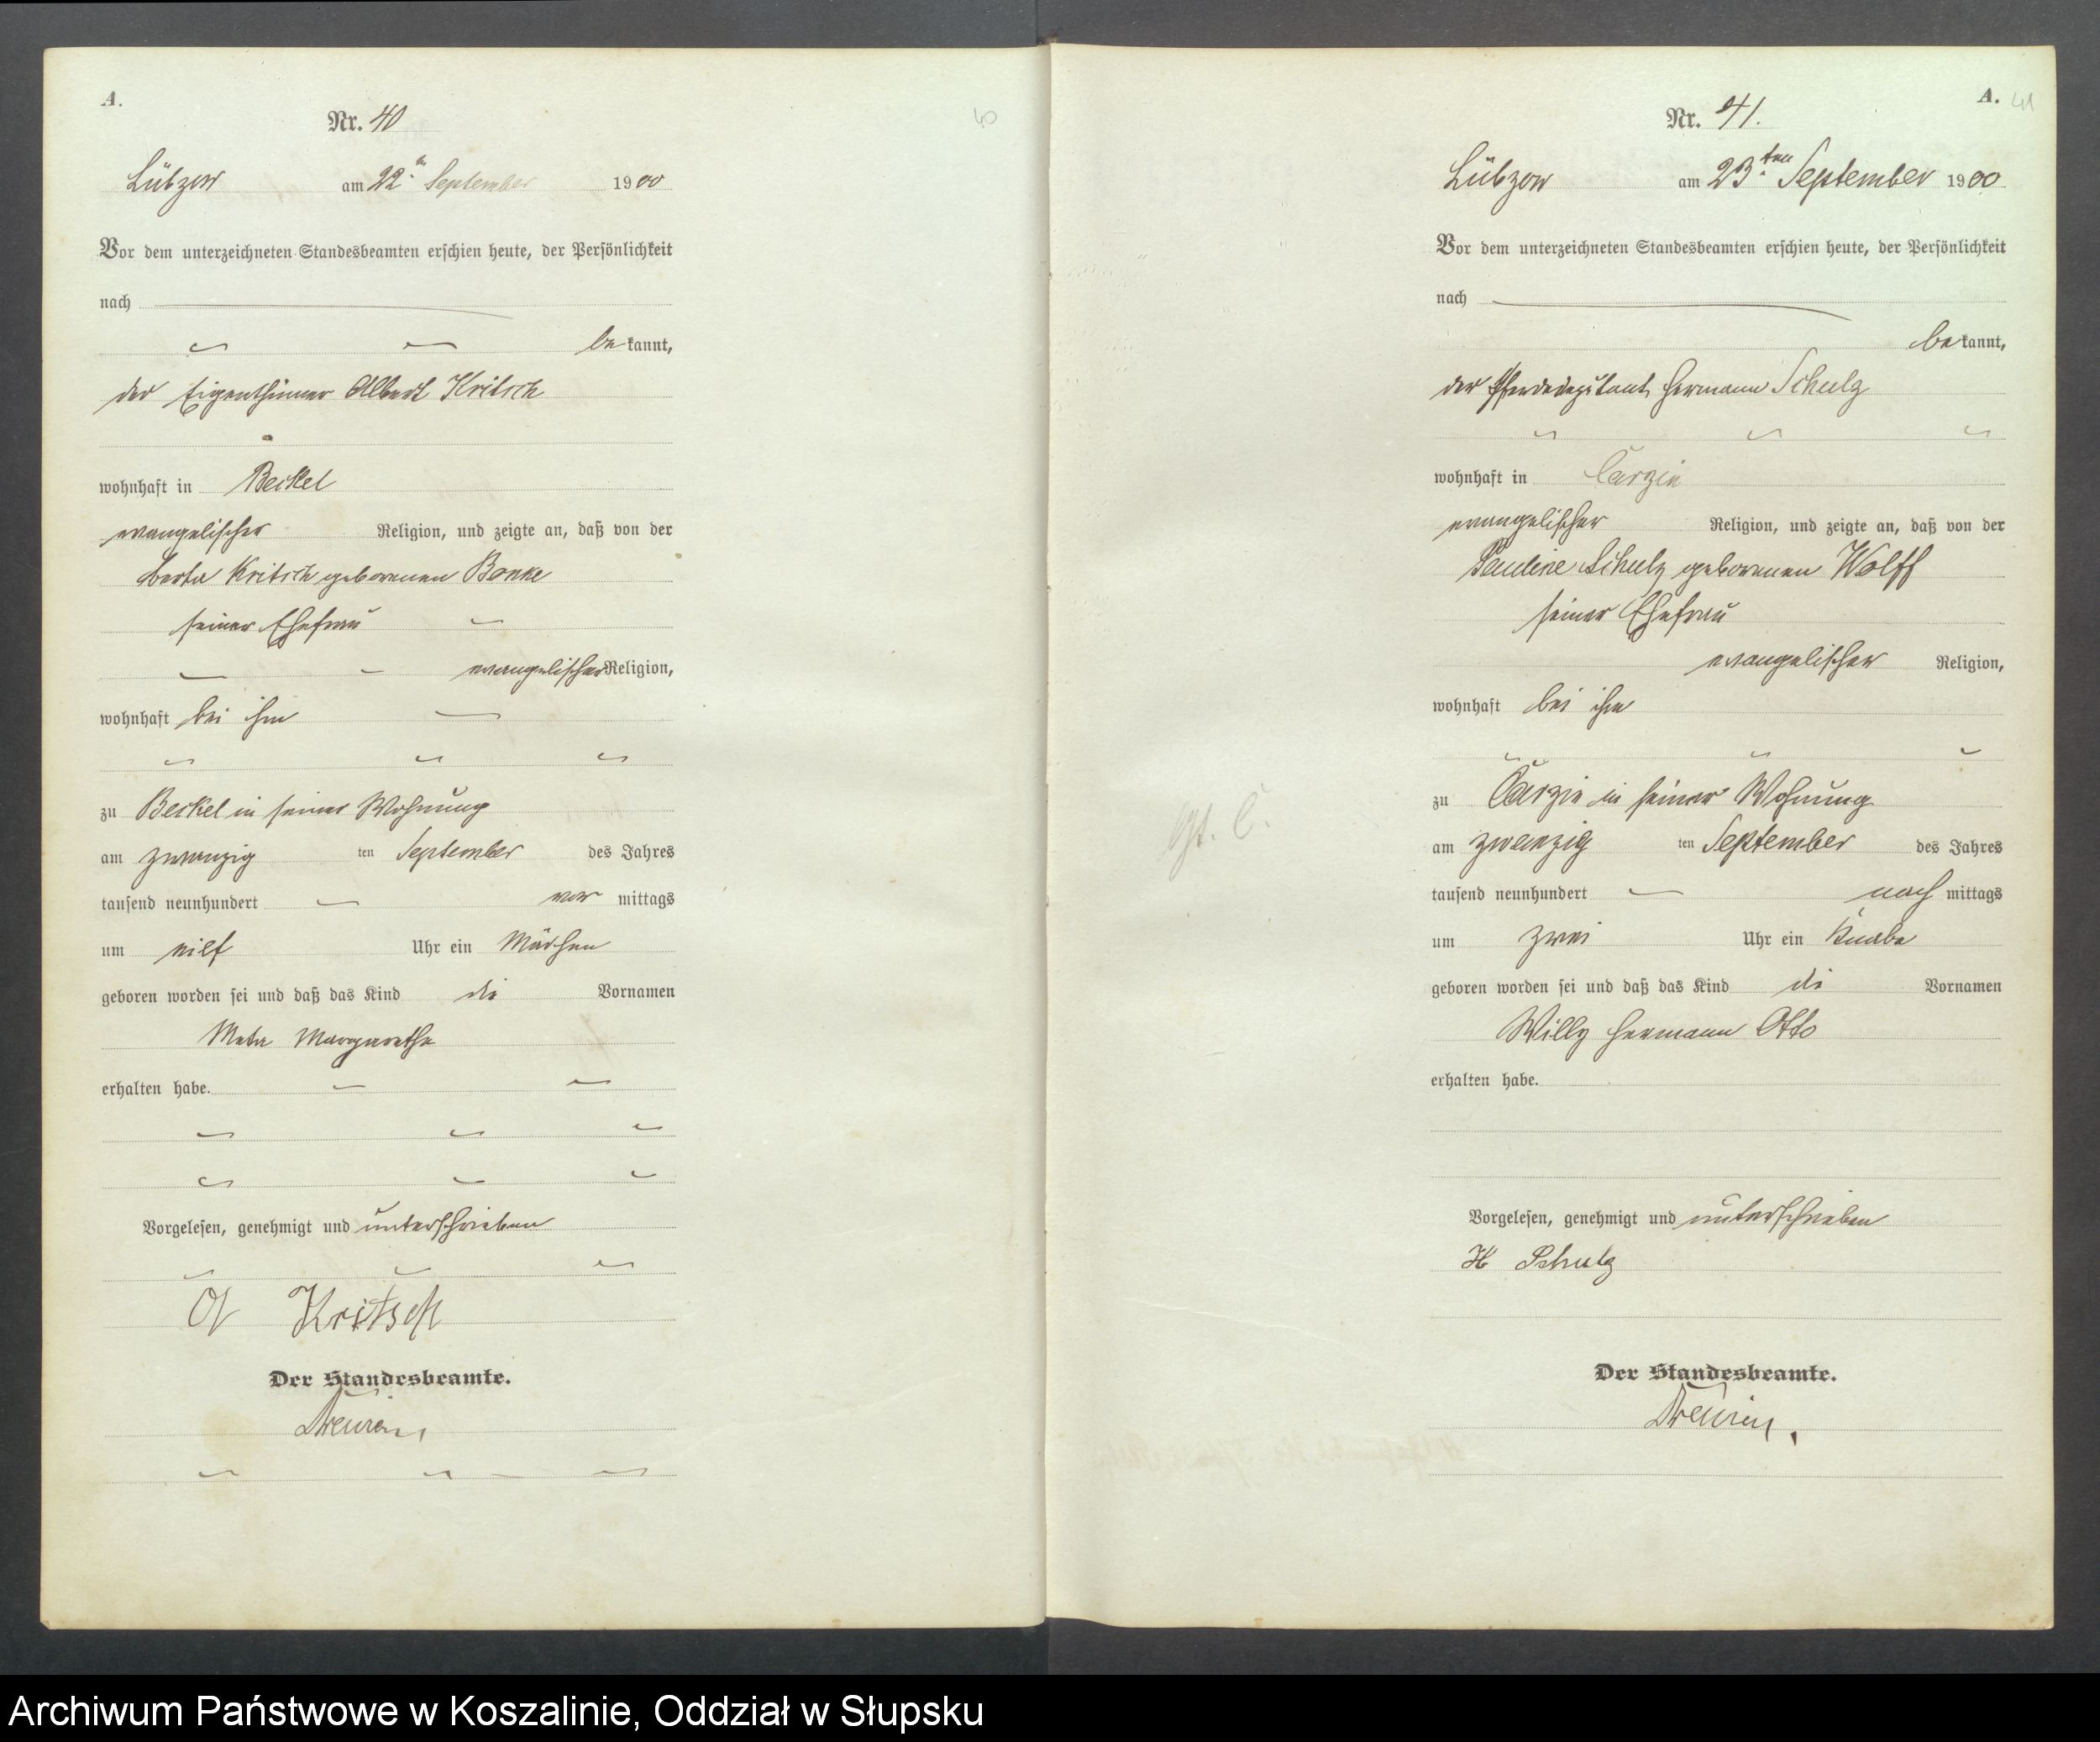 A.
Nr. 40
40
Lübzow am 22. September 1900
Vor dem unterzeichneten Standesbeamten erschien heute, der Persönlichkeit
nach
be kannt,
der Eigenthümer Albert Kritsch
wohnhaft in Beckel
evangelischer Religion, und zeigte an, daß von der
Berta Kritsch geborenen Bonke
seiner Ehefrau
evangelischer Religion,
wohnhaft bei ihm
zu Beckel in seiner Wohnung
am zwanzig ten September des Jahres
tausend neunhundert vor mittags
um eilf Uhr ein Mädchen
geboren worden sei und daß das Kind die Vornamen
Meta Margarethe
erhalten habe.
Vorgelesen, genehmigt und unterschrieben
A Kritsch
Der Standesbeamte.
A. 41
Nr. 41.
Lübzow am 23.ten September 1900
Vor dem unterzeichneten Standesbeamten erschien heute, der Persönlichkeit
nach
be kannt,
der Hermann Schulz
wohnhaft in Carzin
evangelischer Religion, und zeigte an, daß von der
Pauline Schulz geborenen Wolff
seiner Ehefrau
evangelischer Religion,
wohnhaft bei ihm
zu Carzin in seiner Wohnung
am zwanzig ten September des Jahres
tausend neunhundert nach mittags
um zwei Uhr ein Knabe
geboren worden sei und daß das Kind die Vornamen
Willy Hermann Otto
erhalten habe.
Vorgelesen, genehmigt und unterschrieben
H Schulz
Der Standesbeamte.
Archiwum Państwowe w Koszalinie, Oddział w Słupsku